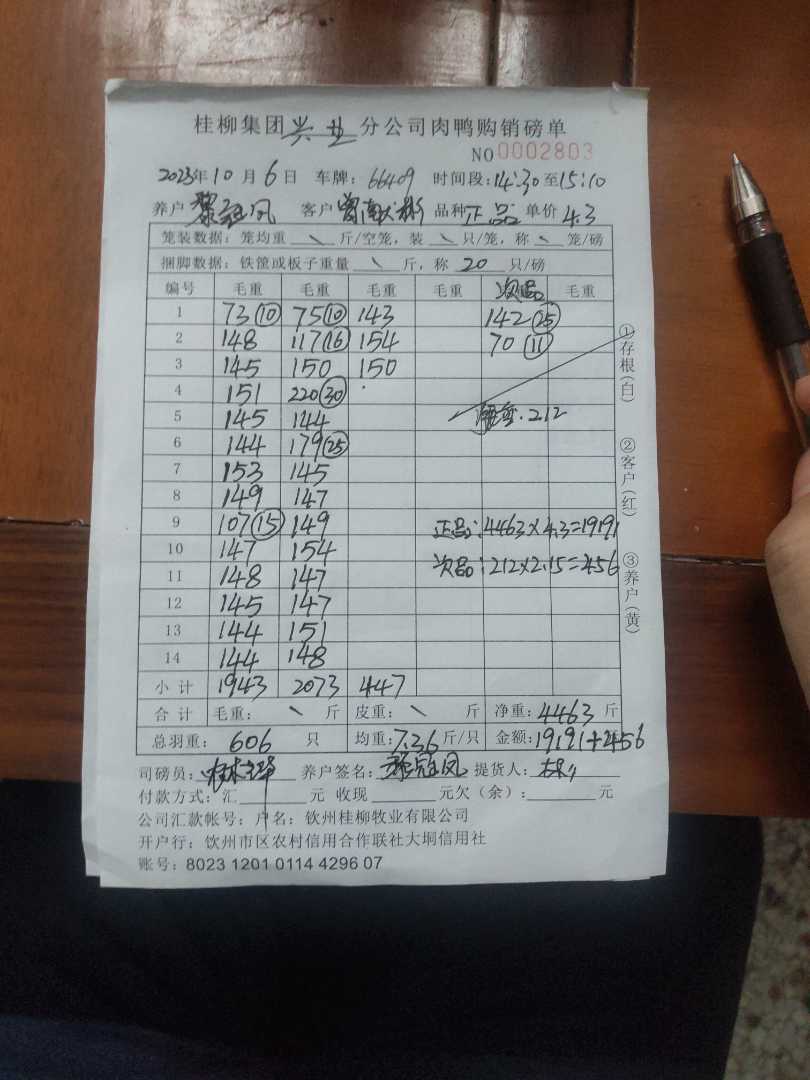 桂柳集团兴业分公司肉鸭购销磅单
NO0002803
2023年10月6日 车牌:66409 时间段:14:30至15:10
养户 黎冠凤 客户 曾南彬 品种正品 单价4.3
笼装数据:笼均重 \ 斤/空笼,装 \ 只/笼,称 \ 笼/磅
捆脚数据:铁筐或板子重量 \ 斤,称 20 只/磅
编号 毛重 毛重 毛重 毛重 次品 毛重
1 73⑩ 75⑩ 143 142㉕
2 148 117⑯ 154 70⑪
3 145 150 150
4 151 220㉚
5 145 144 212
6 144 179㉕
7 153 145
8 149 147
9 107⑮ 149 正品:4463×4.3=19191
10 147 154 次品:212×2.15=456
11 148 147
12 145 147
13 144 151
14 144 148
小计 1943 2073 447
合计 毛重: \ 斤 皮重: \ 斤 净重:4463斤
总羽重: 606 只 均重:7.36斤/只 金额:19191+456
司磅员: 养户签名:黎冠凤 提货人:
付款方式:汇 元 收现 元欠(余): 元
公司汇款帐号:户名:钦州桂柳牧业有限公司
开户行:钦州市区农村信用合作联社大垌信用社
账号:8023 1201 0114 4296 07
①存根(白)
②客户(红)
③养户(黄)